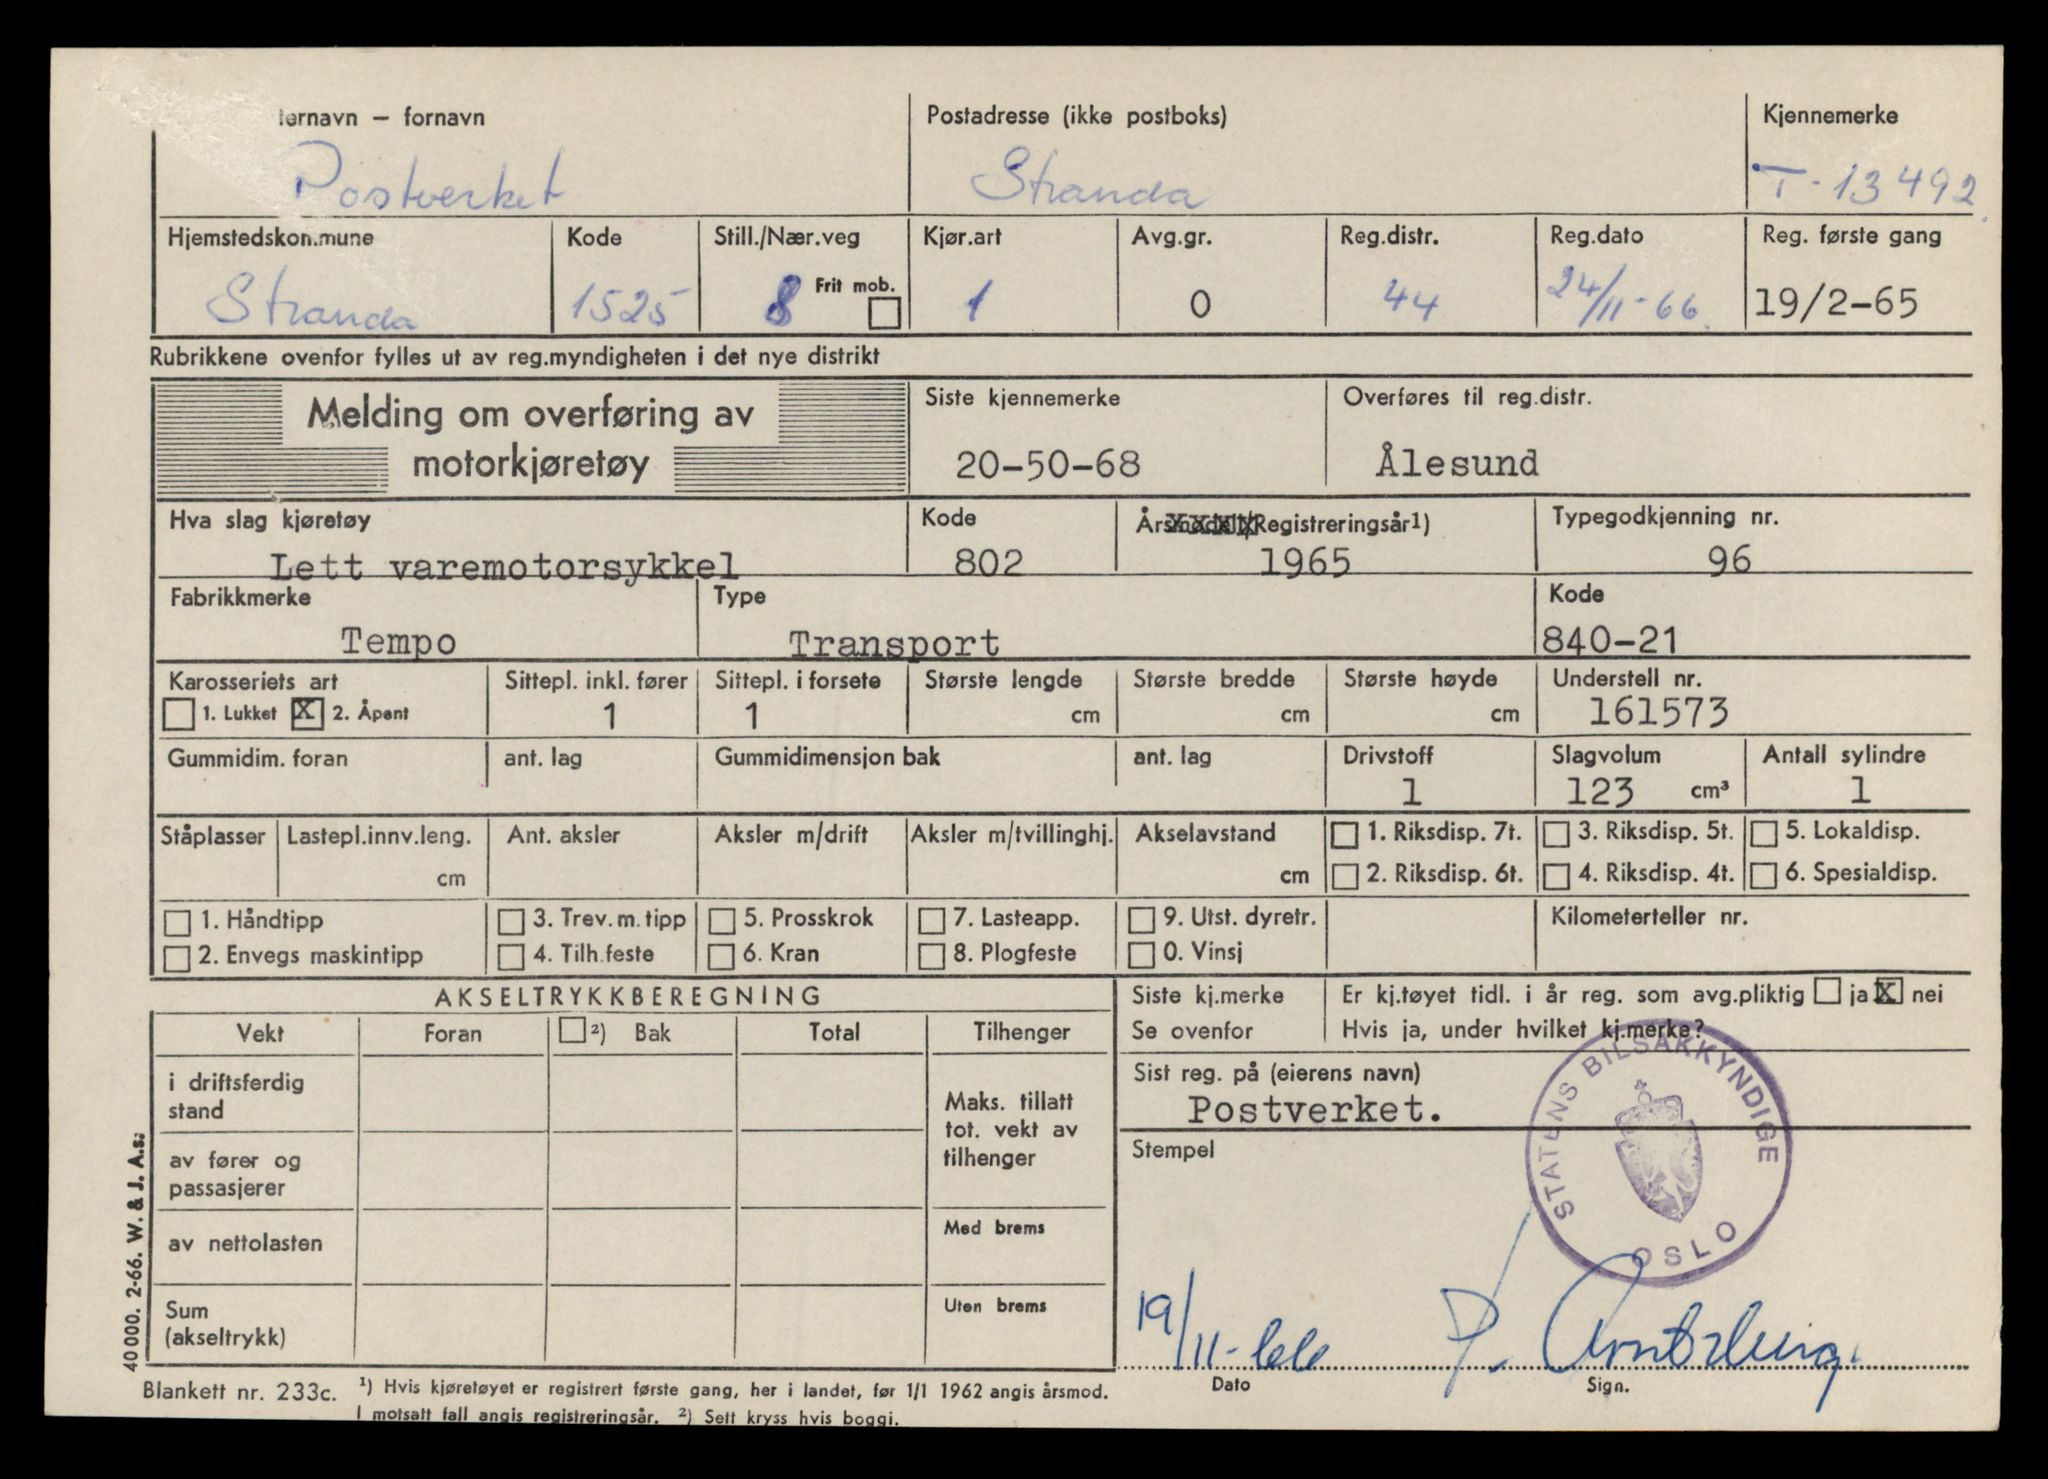 ternavn – fornavn Postadresse (ikke postboks) Kjennemerke
Postverket Stranda T-13492
Hjemstedskommune Kode Still./Nær.veg Kjør.art Avg.gr. Reg.distr. Reg.dato Reg. første gang
Stranda 1525 8 Frit mob. 1 0 44 24/11-66. 19/2-65
Rubrikkene ovenfor fylles ut av reg.myndigheten i det nye distrikt
Melding om overføring av
motorkjøretøy
Siste kjennemerke Overføres til reg.distr.
20-50-68 Ålesund
Hva slag kjøretøy Kode Årsmodell/Registreringsår1) Typegodkjenning nr.
Lett varemotorsykkel 802 1965 96
Fabrikkmerke Type Kode
Tempo Transport 840-21
Karosseriets art Sittepl. inkl. fører Sittepl. i forsete Største lengde Største bredde Største høyde Understell nr.
1. Lukket X 2. Åpent 1 1 cm cm cm 161573
Gummidim. foran ant. lag Gummidimensjon bak ant. lag Drivstoff Slagvolum Antall sylindre
1 123 cm³ 1
Ståplasser Lastepl.innv.leng. Ant. aksler Aksler m/drift Aksler m/tvillinghj. Akselavstand 1. Riksdisp. 7t. 3. Riksdisp. 5t. 5. Lokaldisp.
cm cm 2. Riksdisp. 6t. 4. Riksdisp. 4t. 6. Spesialdisp.
1. Håndtipp 3. Trev. m. tipp 5. Prosskrok 7. Lasteapp. 9. Utst. dyretr. Kilometerteller nr.
2. Envegs maskintipp 4. Tilh.feste 6. Kran 8. Plogfeste 0. Vinsj
AKSELTRYKKBEREGNING Siste kj.merke Er kj.tøyet tidl. i år reg. som avg.pliktig ja X nei
Vekt Foran 2) Bak Total Tilhenger Se ovenfor Hvis ja, under hvilket kj.merke?
i driftsferdig
stand
Sist reg. på (eierens navn)
Postverket.
Maks. tillatt
tot. vekt av
tilhenger
Stempel
STATENS BILSAKKYNDIGE
OSLO
av fører og
passasjerer
av nettolasten Med brems
Sum
(akseltrykk)
Uten brems
19/11-66
Dato Sign.
40000. 2-66. W. & J. A.s.
Blankett nr. 233c. 1) Hvis kjøretøyet er registrert første gang, her i landet, før 1/1 1962 angis årsmod.
I motsatt fall angis registreringsår. 2) Sett kryss hvis boggi.